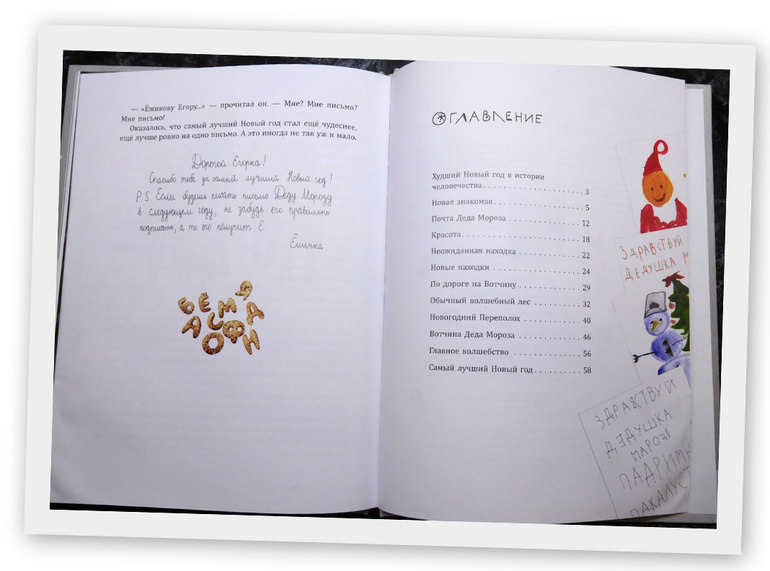 — «Ёжикову Егору...» — прочитал он. — Мне? Мне письмо?
Мне письмо!
Оказалось, что самый лучший Новый год стал ещё чудеснее,
ещё лучше ровно на одно письмо. А это иногда не так уж и мало.
Дорогой Егорка!
Спасибо тебе за самый лучший Новый год!
P S Если будешь писать письмо Деду Морозу
в следующем году, не забудь его правильно
подписать, а то его получит Е.
Ёшичка
БЁМЯ
АСФД
ОИН
ОГЛАВЛЕНИЕ
Худший Новый год в истории
человечества . . . . . . . . . . . . . . . . . . . . . 3
Новая знакомая . . . . . . . . . . . . . . . . . . . . 5
Почта Деда Мороза . . . . . . . . . . . . . . . . 12
Красота . . . . . . . . . . . . . . . . . . . . . . . . . 18
Неожиданная находка . . . . . . . . . . . . . . 22
Новые находки . . . . . . . . . . . . . . . . . . . 24
По дороге на Вотчину . . . . . . . . . . . . . . 29
Обычный волшебный лес . . . . . . . . . . . 32
Новогодний Переполох . . . . . . . . . . . . . 40
Вотчина Деда Мороза . . . . . . . . . . . . . . 46
Главное волшебство . . . . . . . . . . . . . . . 56
Самый лучший Новый год . . . . . . . . . . . 58
ЗДРАВСТВУЙ
ДЕДУШКА М
ЗДРАВСТВУЙ
ДЕДУШКА
МАРОЗ
ПАДРИМ
ПАЖАЛУС